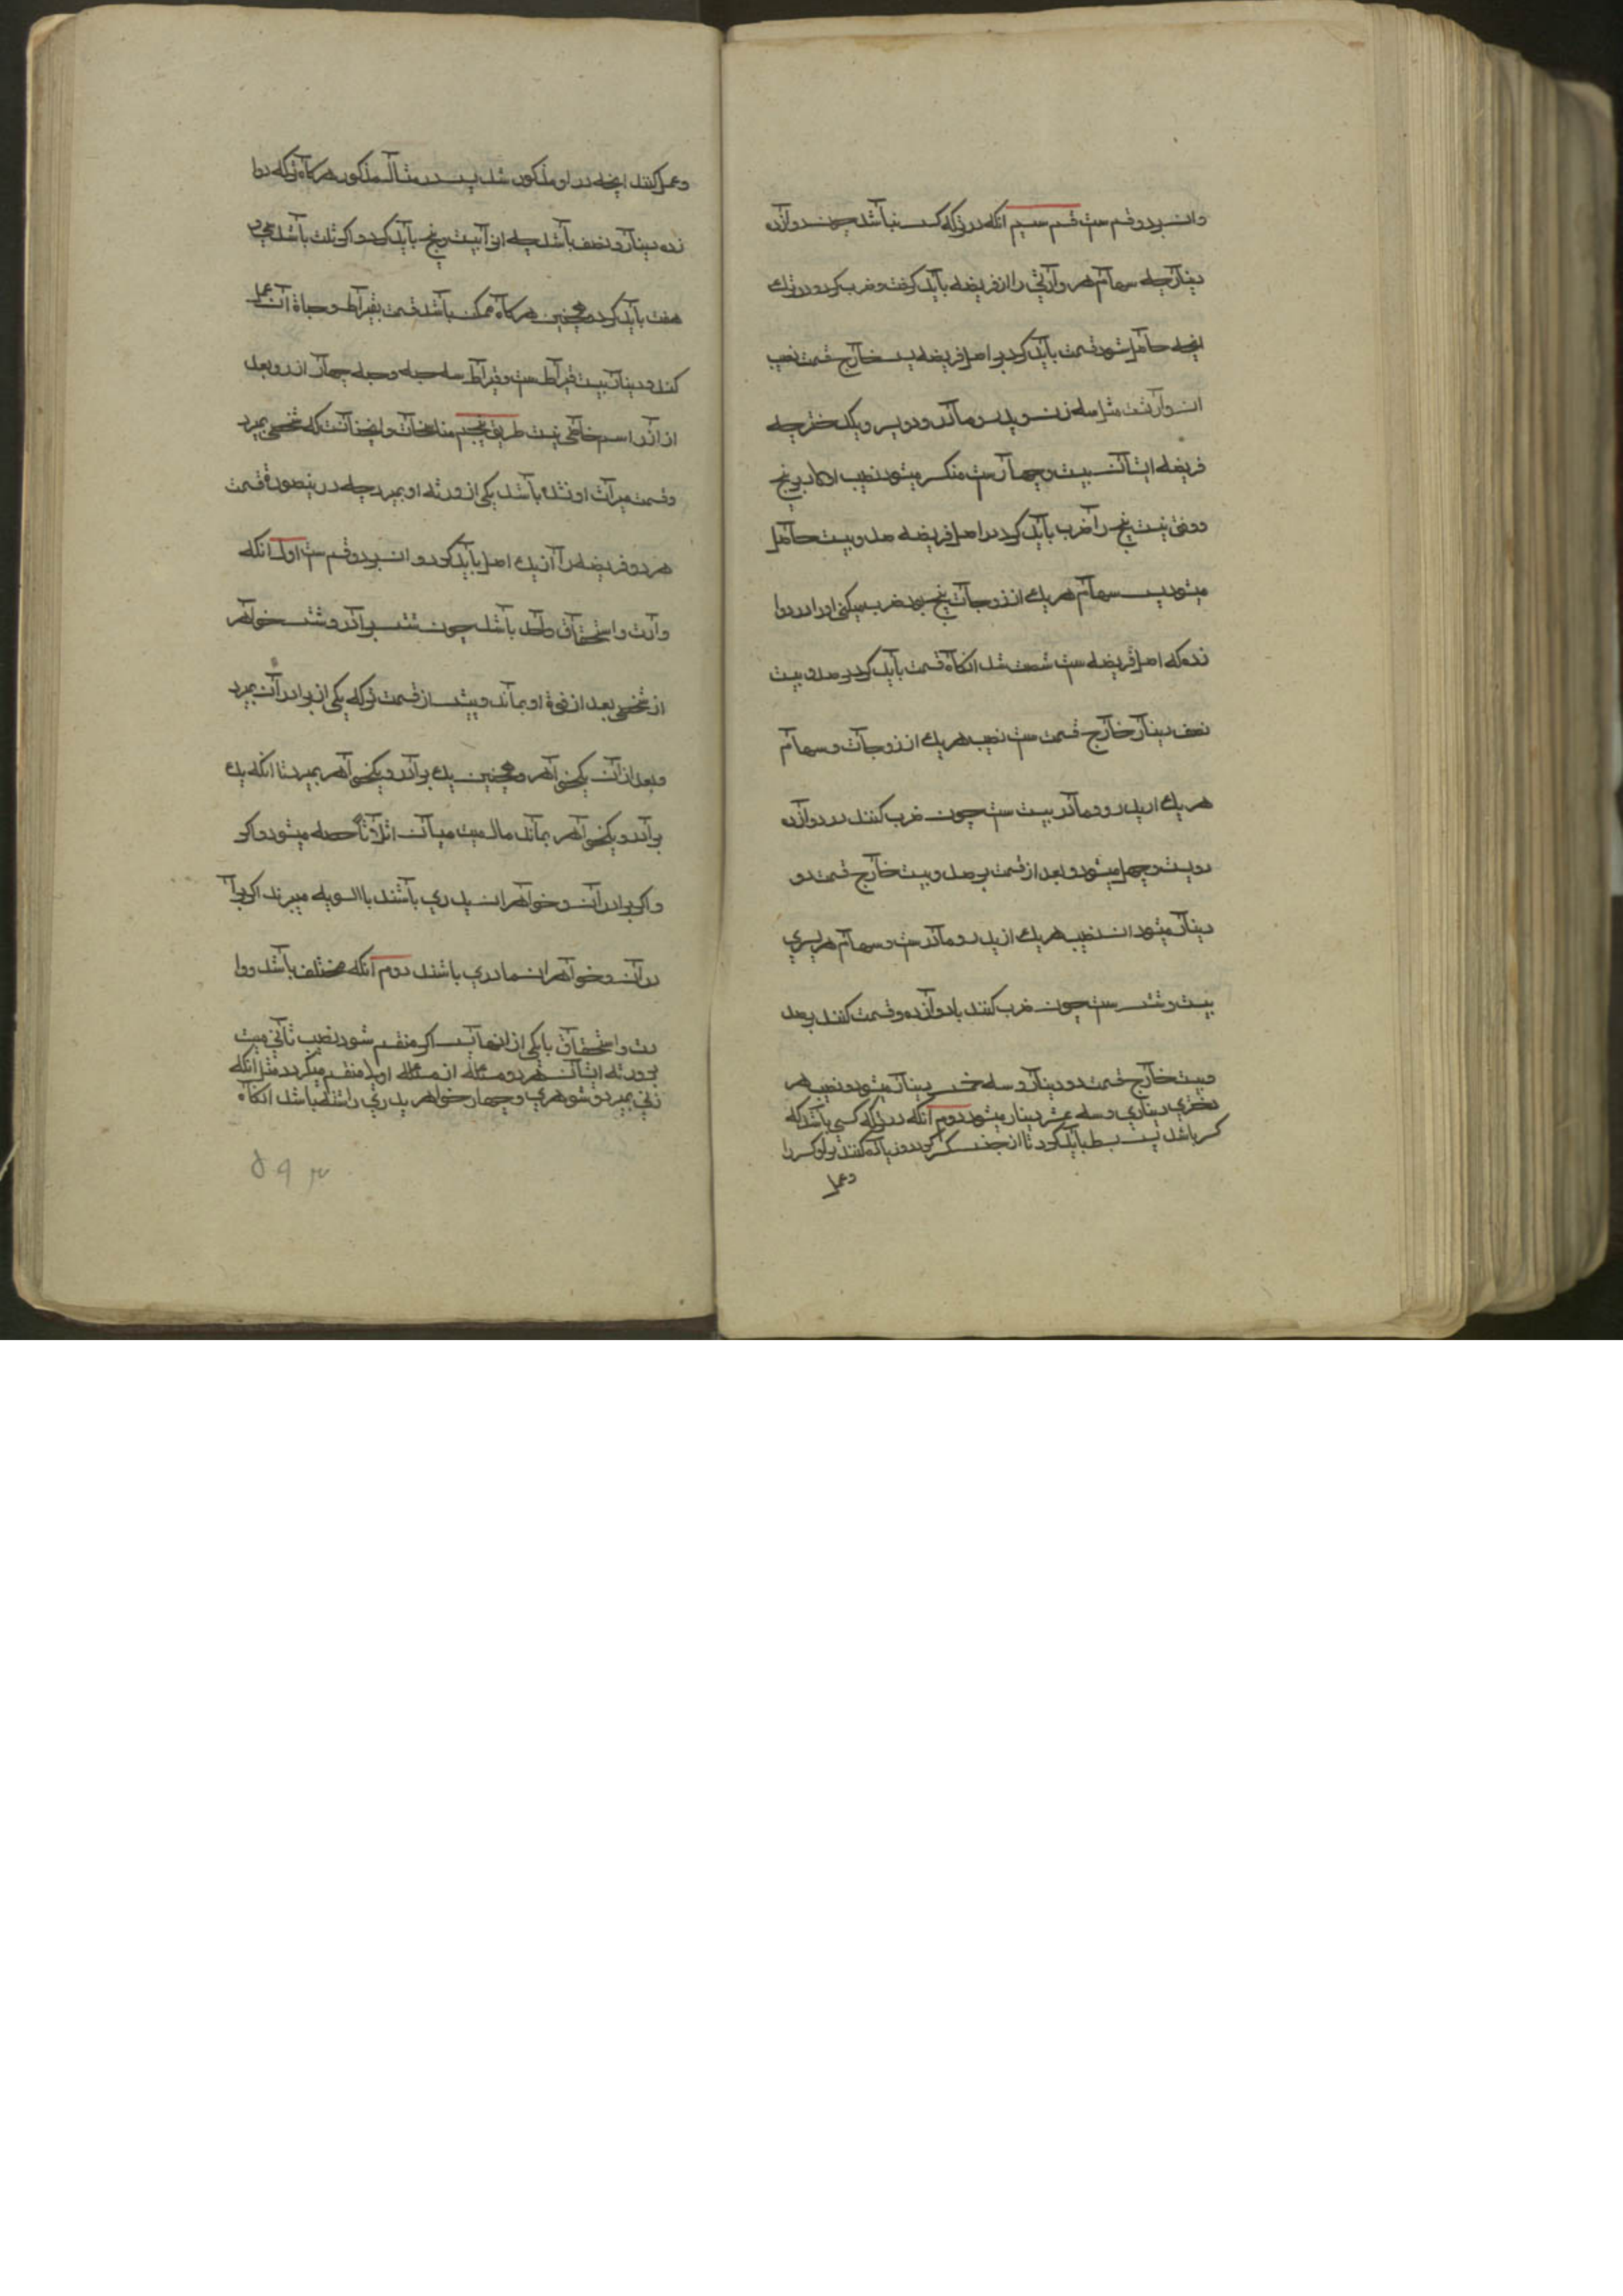 وان بر دو قسم ست قسم سیم انکه در ترکه کسر نباشد چون دوازده
دینار چه سهام هر وارثی را از فریضه باید کرفت و ضرب کرد در ترکه
انچه حاصل شود قسمت باید کرد بر اصل فریضه پس خارج قسمت نصیب
ان وارثست مثل سه زن و پدر و مادر و دو پسر و یک دختر چه
فریضه ایشان بیست و چهار ست منکسر میشود نصیب اولاد بر پنج
و وفق نیست پنج را ضرب باید کرد در اصل فریضه صد و بیست حاصل
میشود پس سهام هر یک از زوجات پنج بود ضرب میکنی او را در دوا
زده که اصل فریضه ست شصت شد انکاه قسمت باید کرد بر صد و بیست
نصف دینار خارج قسمت ست نصیب هر یک از زوجات و سهام
هر یک از پدر و مادر بیست ست چون ضرب کنند در دوازده
دویست و چهل میشود و بعد از قسمت بر صد و بیست خارج قسمت دو
دینار میشود ان نصیب هر یک از پدر و مادر ست و سهام هر پسری
بیست و شش ست چون ضرب کنند با دوازده و قسمت کنند بر صد
و بیست خارج قسمت دو دینار و سه خمس دینار میشود و نصیب هر
دختری دیناری و سه عشر دینار میشود دوم انکه در ترکه کسی باشد که
کسر باشد پس بسط باید کرد تا از جنس کسر کردد و زیاده کنند برو کسر را
وعمل
وعمل کنند انچه در او مذکور شد پس در مثال مذکور هرکاه ترکه دوا
زده دینار و نصف باشد چه انرا بیست و پنج باید کرد و اکر ثلث باشد سی و
هفت باید کرد و همچنین هرکاه ممکن باشد قسمت بقیراط و حباة ان عمل
کند و دینار بیست قیراط ست و قیراط سه حبه و حبه چهار ارز و بعد
از ارز اسم خاصی نیست طریق پنجم مناسخات و این انست که شخصی بمیرد
و قسمت میراث او نشده باشد یکی از ورثه او بمیرد چه در ینصورة قسمت
هر دو فریضه را از یک اصل باید کرد و ان بر دو قسم ست اول انکه
وارث و استحقاق واحد باشد چون شش برادر و شش خواهر
از شخصی بعد از فوة او بماند و پیش از قسمت ترکه یکی از برادران بمیرد
و بعد از ان یکخواهر و همچنین یک برادر و یکخواهر بمیرد تا انکه یک
برادر و یکخواهر بماند مال میت میان اثلاثا حصه میشود و اکر
و اکر برادران و خواهران پدری باشند بالسویه میبرند اکر برا
دران و خواهران مادری باشند دوم انکه مختلف باشد ووا
رث و استحقاق یا یکی از انها پس اکر منقسم شود نصیب ثانی میت
بر ورثه ایشان هر دو مسئله از مسئله اولا منقسم میکردد مثل انکه
زنی بمیرد و شوهری و چهار خواهر پدری داشته باشد انکاه